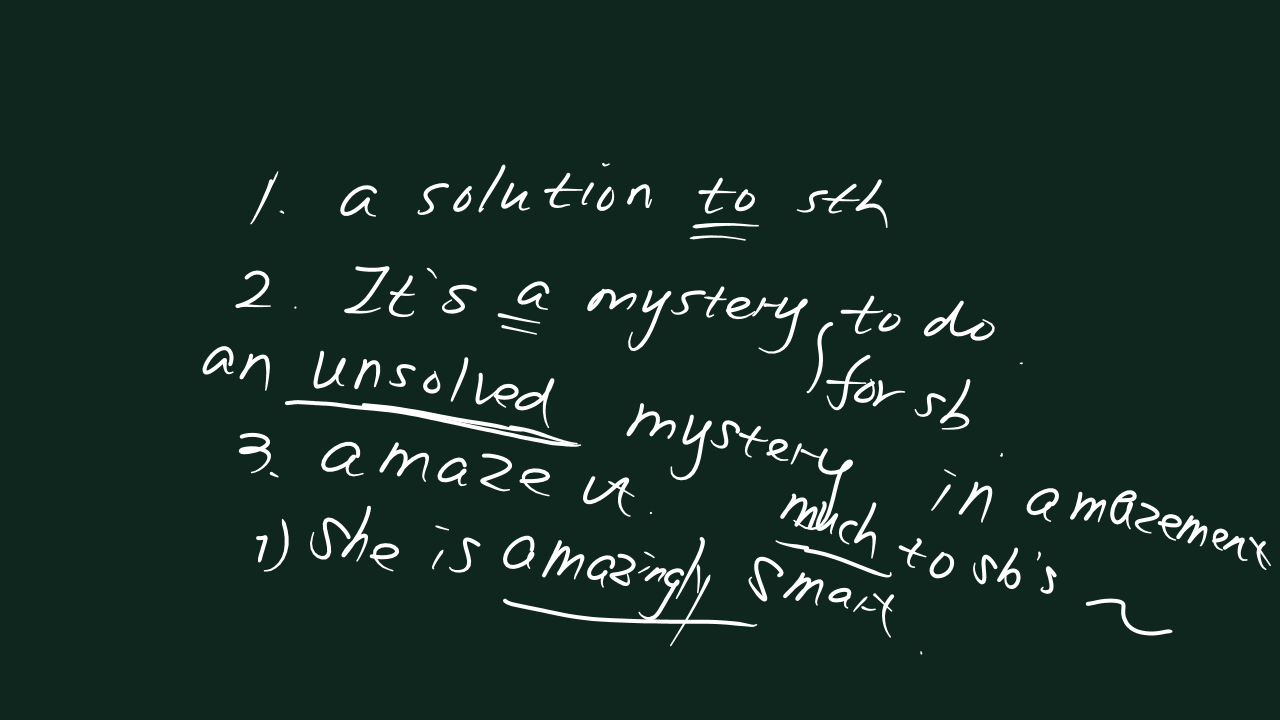 1. a solution to sth
2. It's a mystery to do
for sb
an unsolved mystery
3. amaze vt. in amazement
much to sb's ~
1) She is amazingly smart